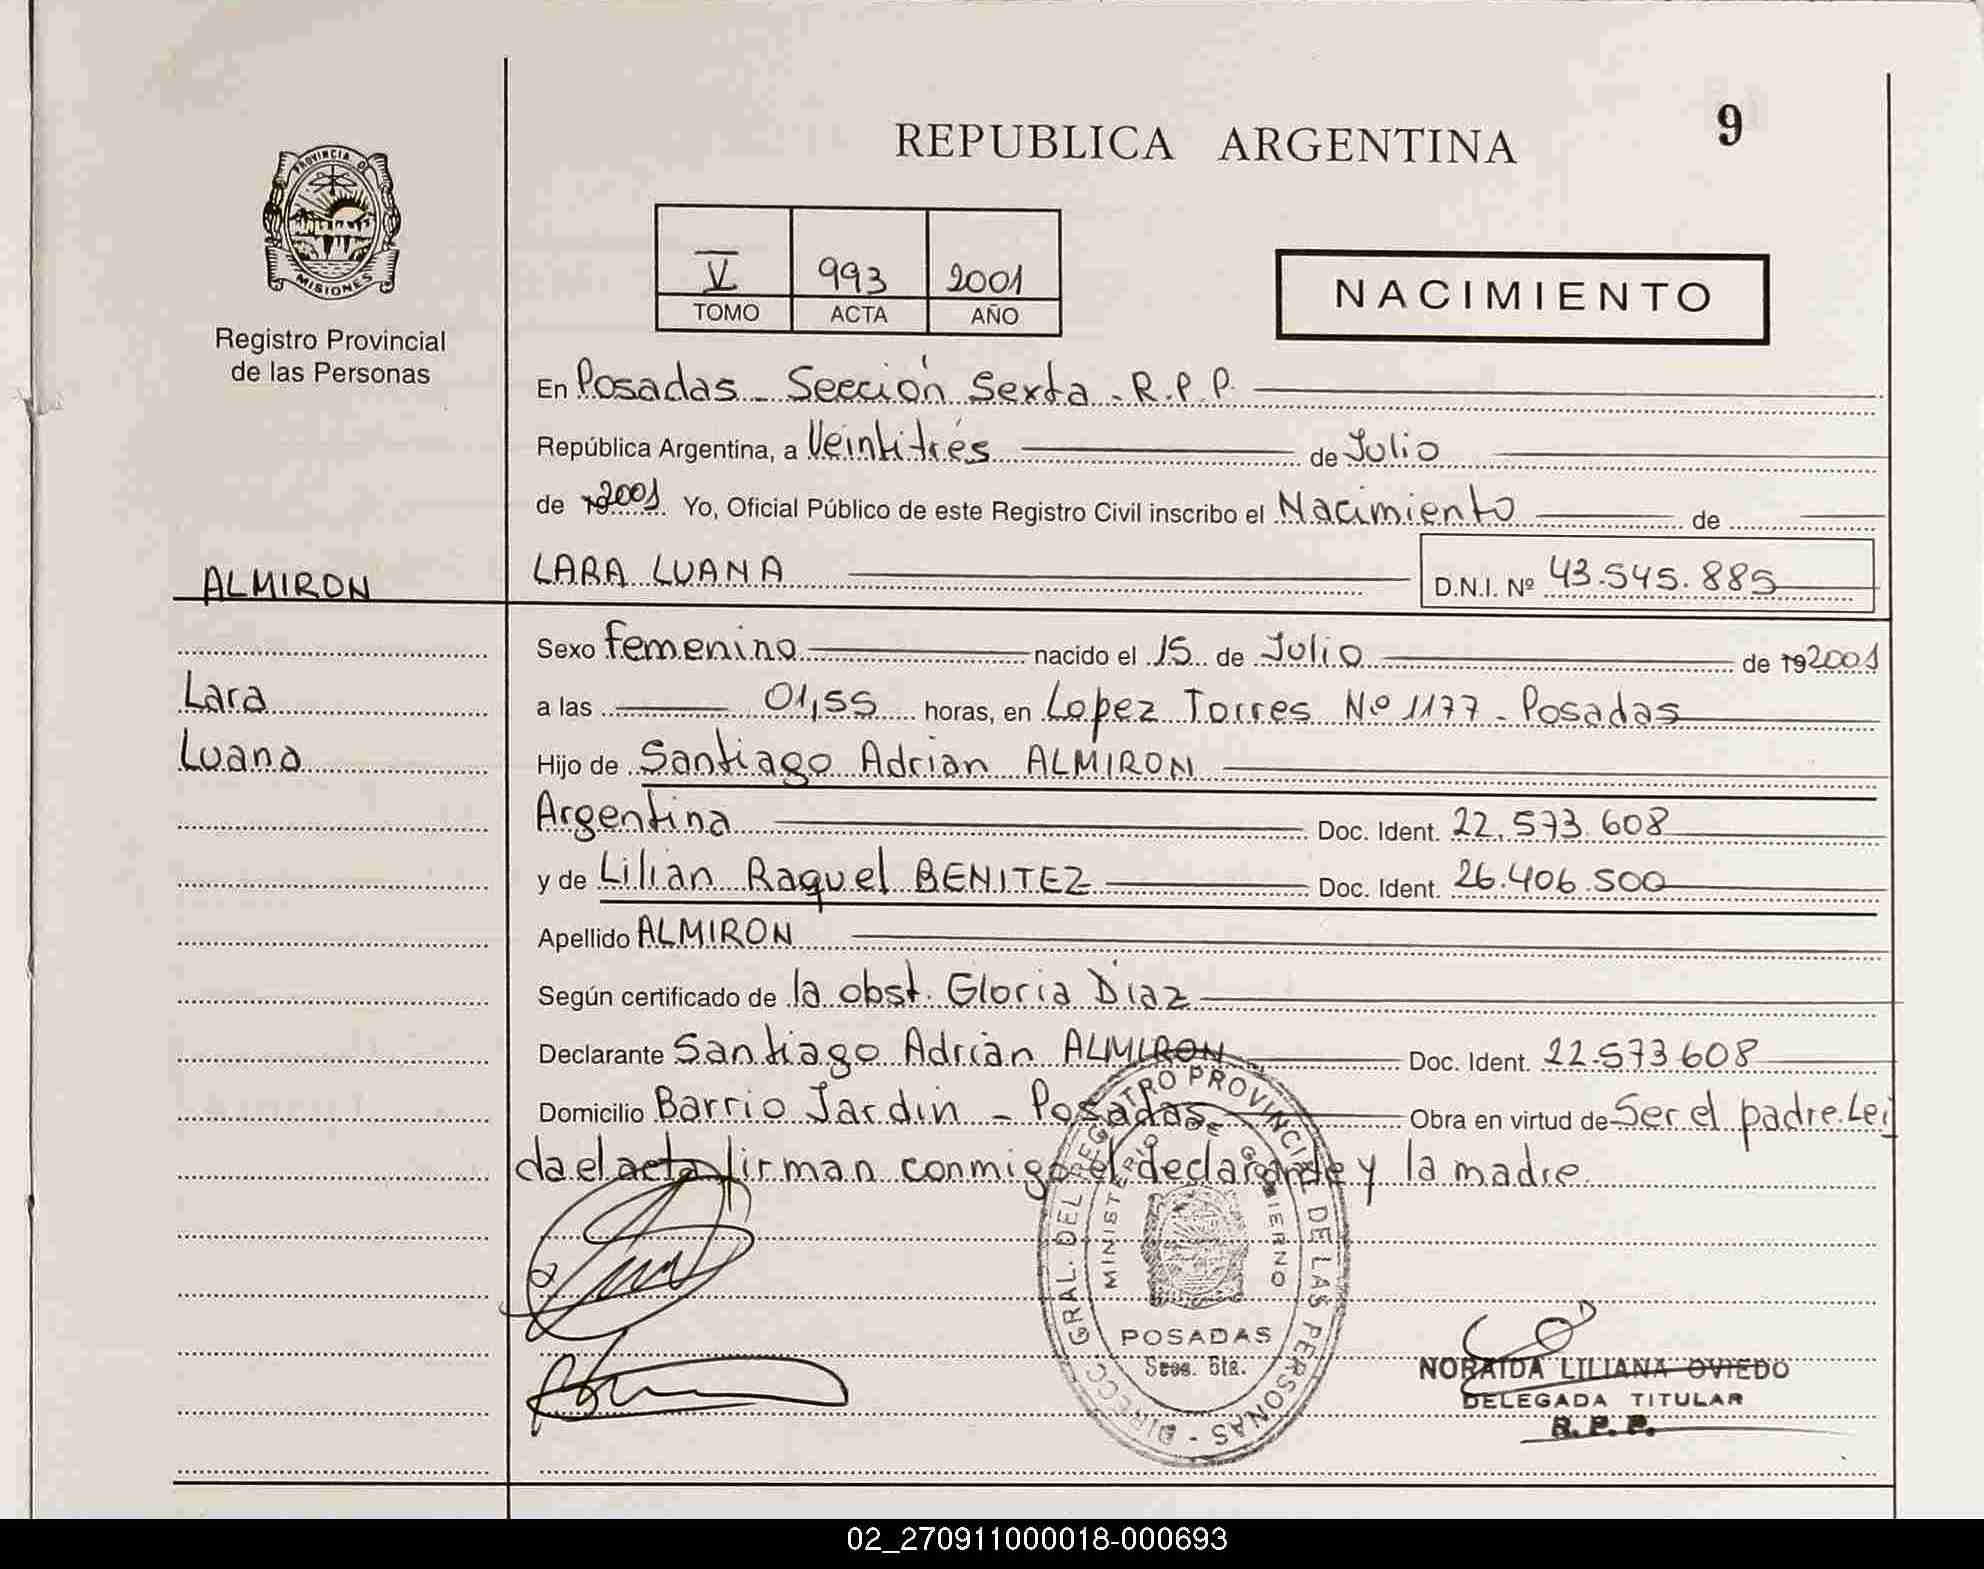 REPUBLICA ARGENTINA
9
PROVINCIA DE
MISIONES
Registro Provincial
de las Personas
V 993 2001
TOMO ACTA AÑO
NACIMIENTO
En Posadas - Sección Sexta - R.P.P.
República Argentina, a Veintitrés de Julio
de 192001 Yo, Oficial Público de este Registro Civil inscribo el Nacimiento de
ALMIRON
LARA LUANA D.N.I. Nº 43.545.885
Sexo femenino nacido el 15 de Julio de 192001
Lara
a las 01,55 horas, en Lopez Torres Nº 1177 - Posadas
Luana
Hijo de Santiago Adrian ALMIRON
Argentina Doc. Ident. 22.573.608
y de Lilian Raquel BENITEZ Doc. Ident. 26.406.500
Apellido ALMIRON
Según certificado de la obst. Gloria Diaz
Declarante Santiago Adrian ALMIRON Doc. Ident. 22.573.608
Domicilio Barrio Jardin - Posadas Obra en virtud de Ser el padre. Lei
da el acta firman conmigo el declarante y la madre.
DIRECC. GRAL. DEL REGISTRO PROVINCIAL DE LAS PERSONAS -
MINISTERIO DE GOBIERNO
POSADAS
Secc. 6ta.
NORAIDA LILIANA OVIEDO
DELEGADA TITULAR
R. P. P.
02_270911000018-000693